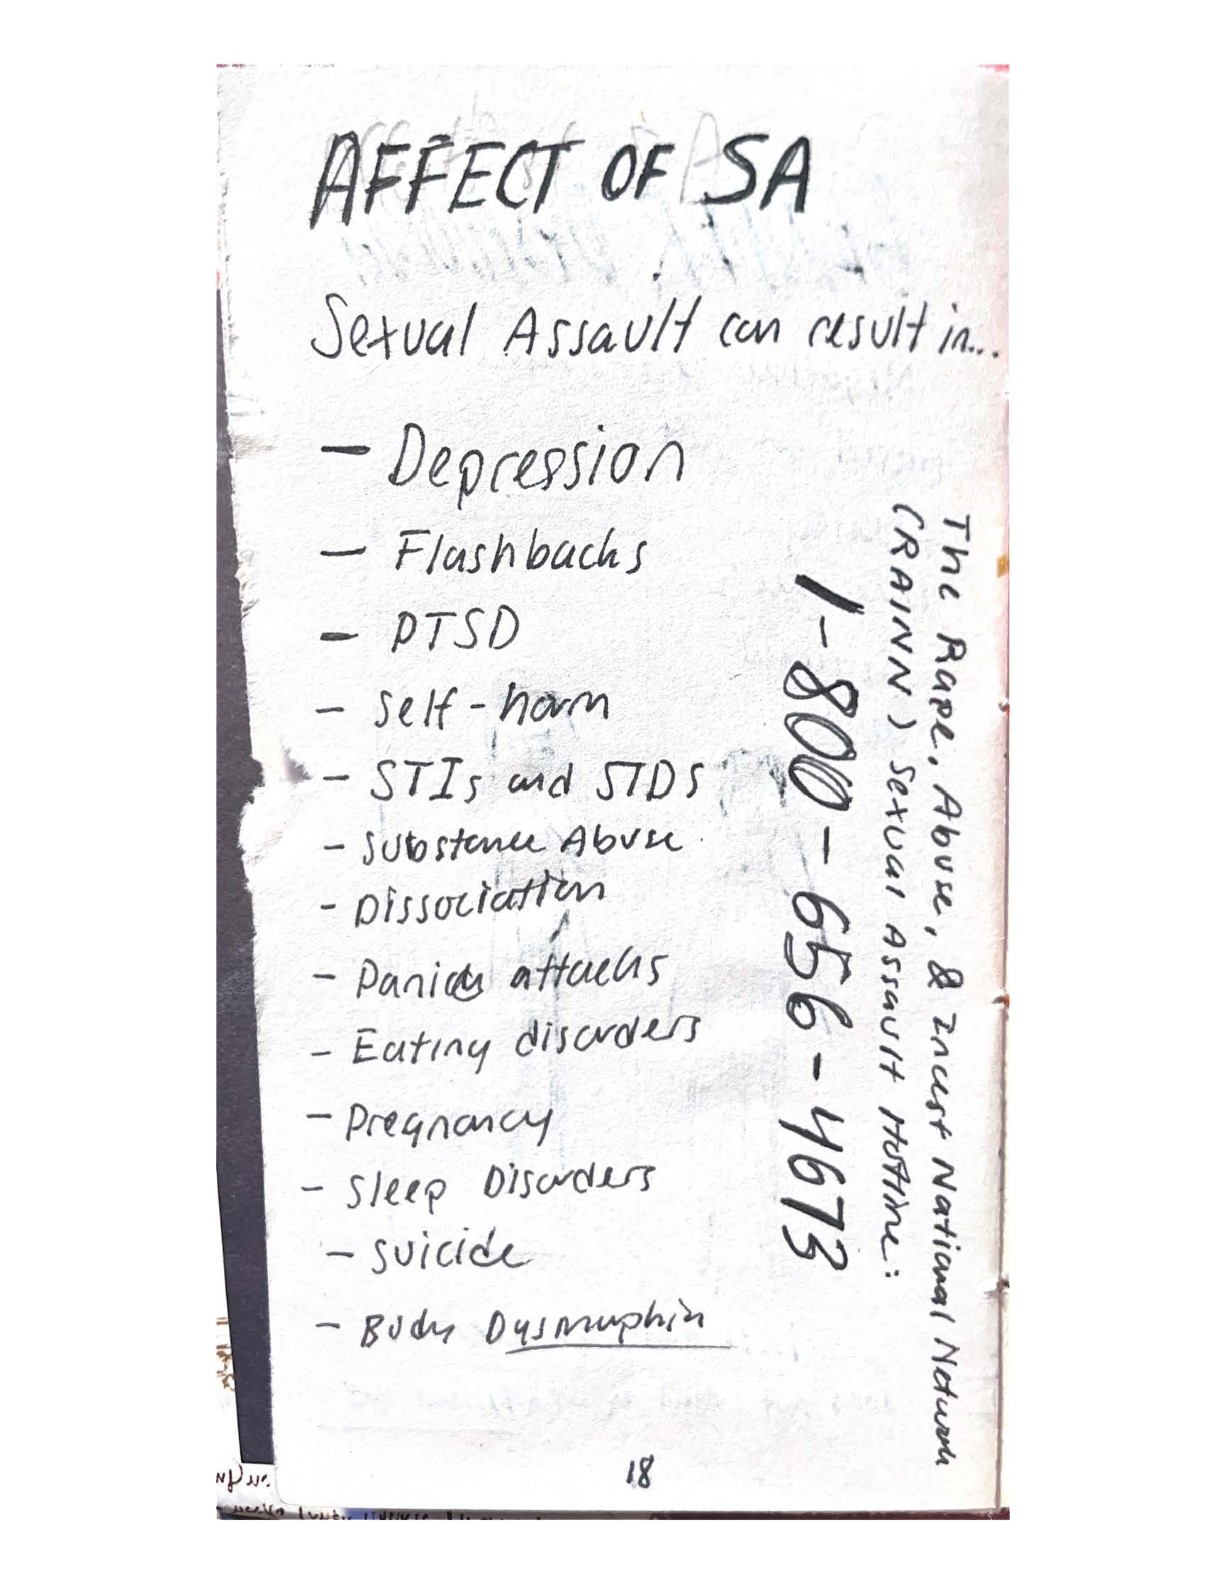 AFFECT OF SA
Sexual Assault can result in...
- Depression
- Flashbacks
- PTSD
- Self-harm
- STIs and STDs
- Substance Abuse
- Dissociation
- Panick attacks
- Eating disorders
- Pregnancy
- Sleep Disorders
- suicide
- Body Dysmorphia
The Rape, Abuse, & Incest National Network
(RAINN) Sexual Assault Hotline:
1-800-656-4673
18